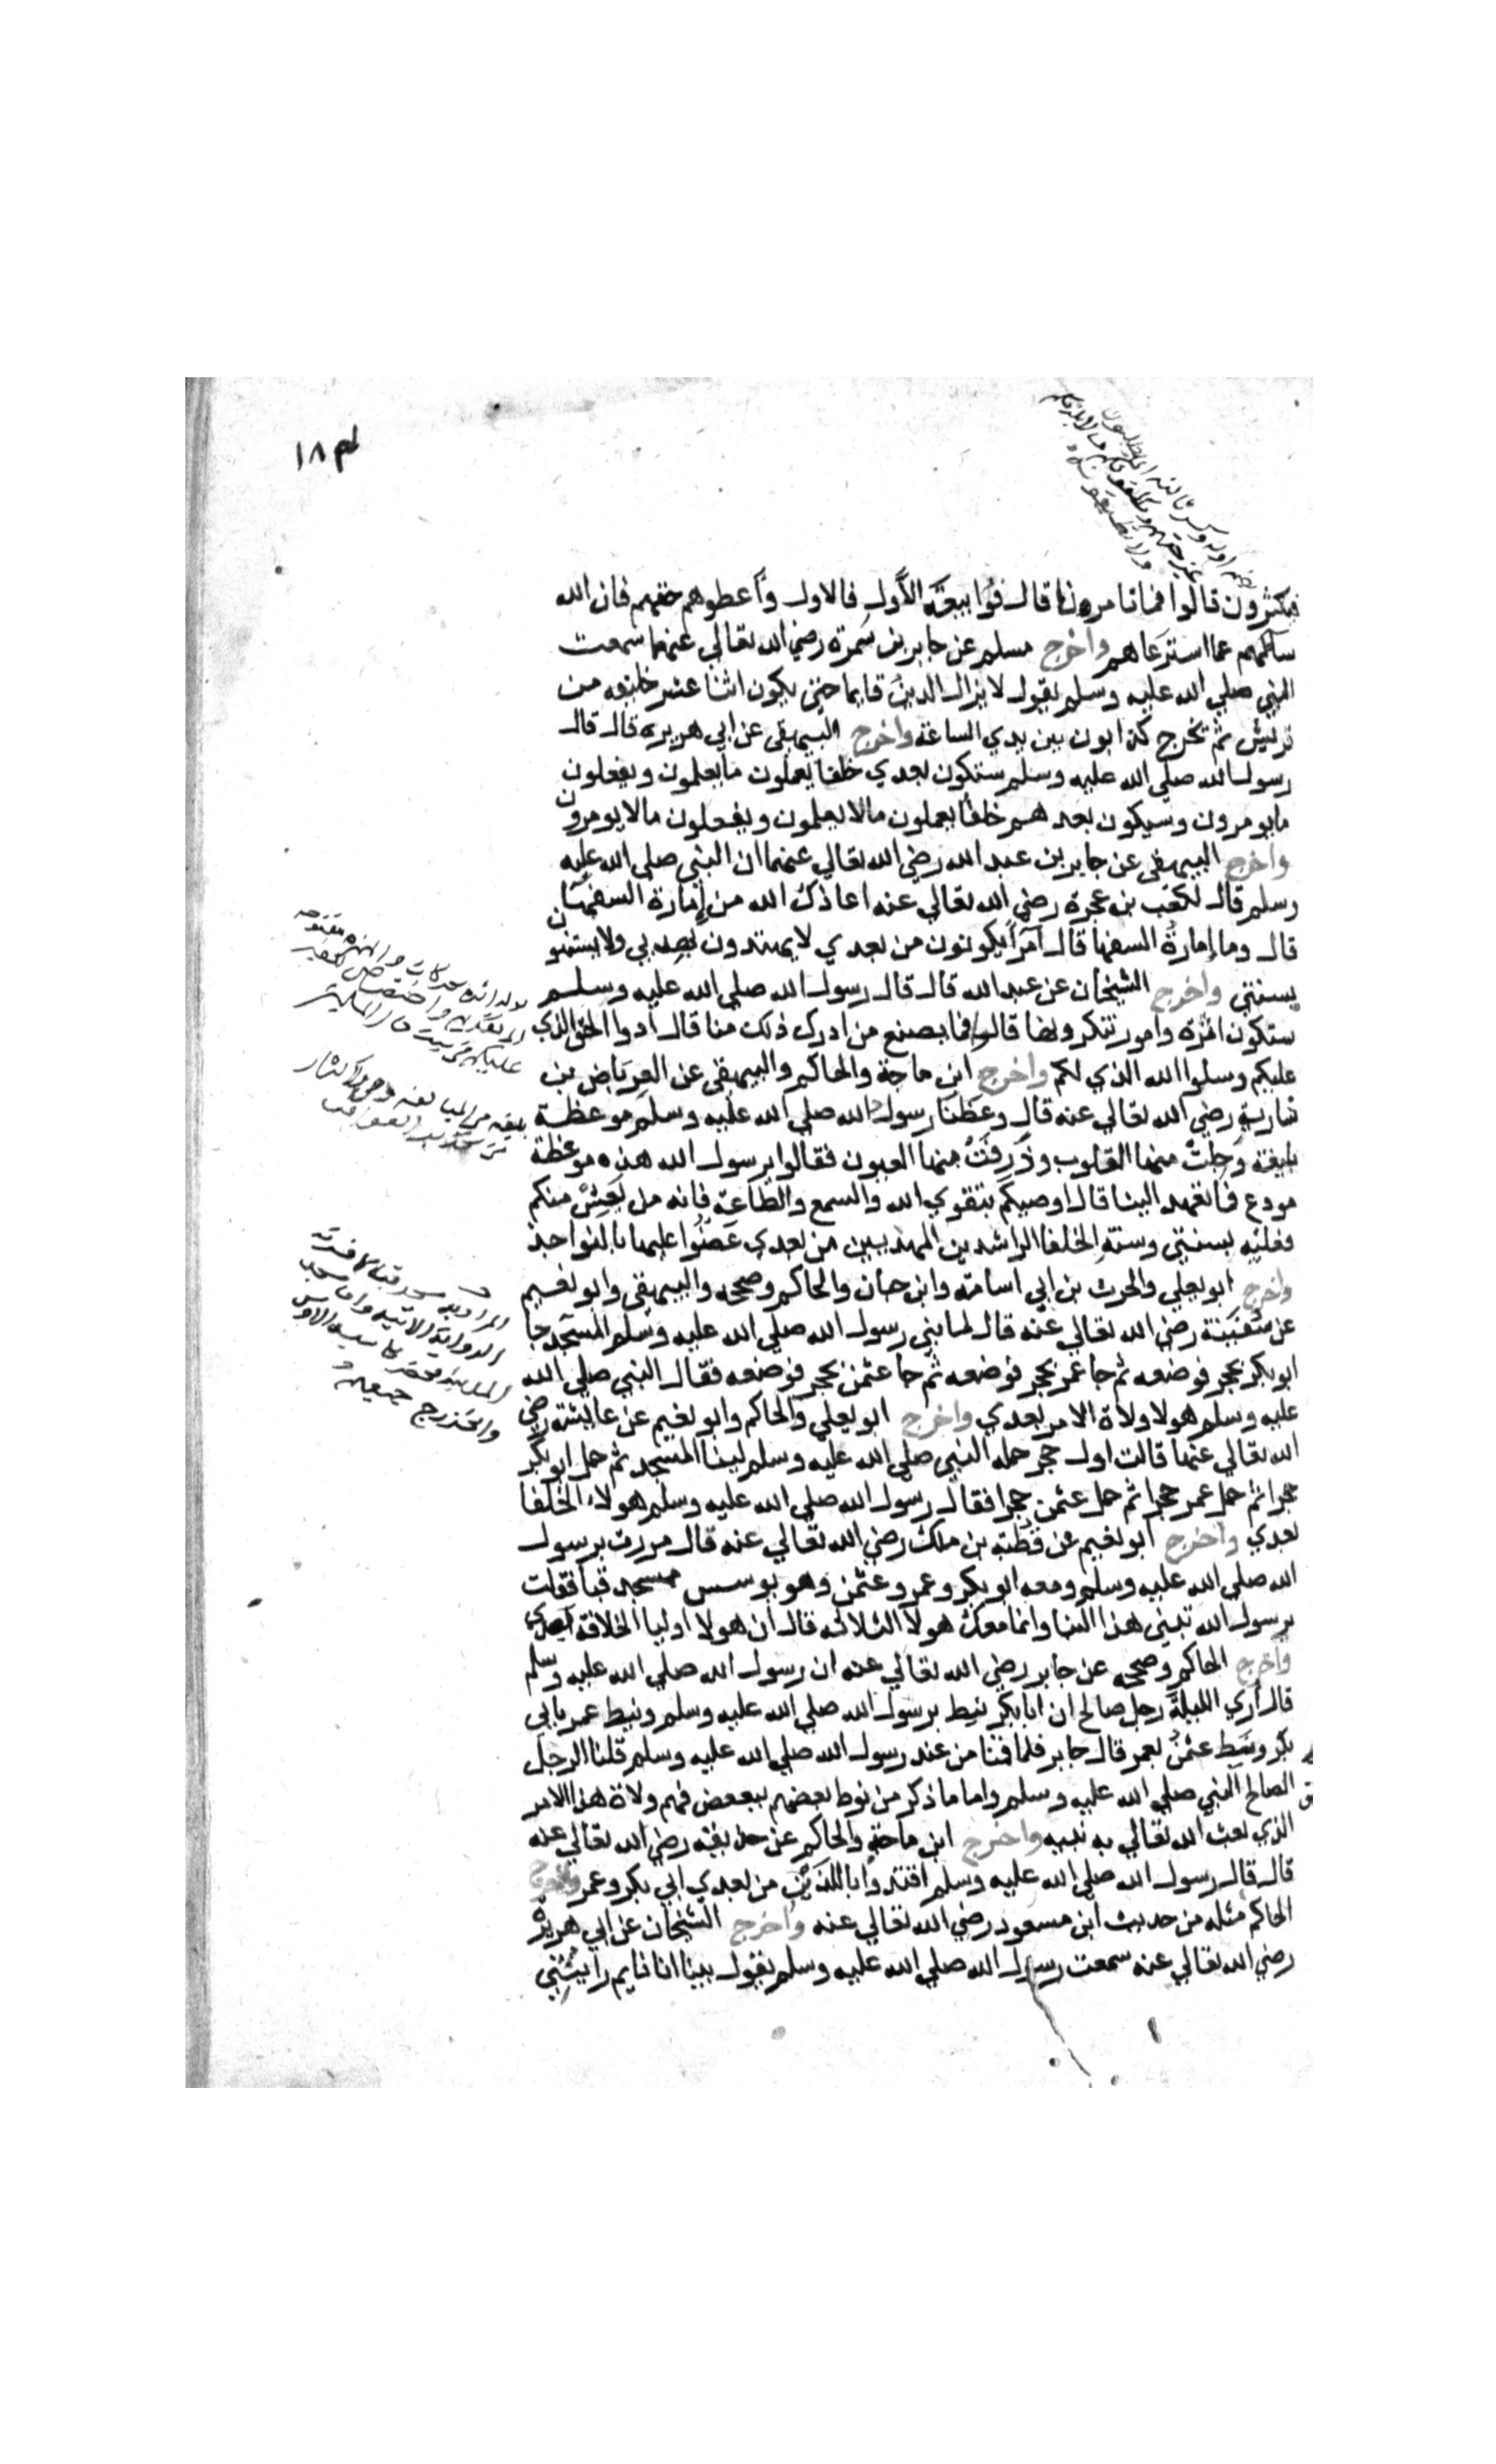 ١٨٣
فيكثرون قالوا فما تامرونا قال فوا ببيعة الأول فالاول وأعطوهم حقهم فان الله
سائلهم عما استرعاهم واخرج مسلم عن جابر بن سمرة رضي الله تعالي عنهما سمعت
النبي صلي الله عليه وسلم يقول لا يزال الدين قايما حتي يكون اثنا عشر خليفه من
قريش ثم تخرج كذابون بين يدي الساعة واخرج البيهقي عن ابي هريره قال قال
رسول الله صلي الله عليه وسلم ستكون بعدي خلفا يعملون ما يعلمون ويفعلون
ما يومرون وسيكون بعدهم خلفا يعملون مالا يعلمون ويفعلون مالا يومرون
واخرج البيهقي عن جابر بن عبد الله رضي الله تعالي عنهما ان النبي صلي الله عليه
وسلم قال لكعب بن عجرة رضي الله تعالي عنه اعاذك الله من إمارة السفهآ
قال وما إمارة السفها قال أمرآ يكونون من بعدي لا يهتدون بهديي ولا يستنون
بسنتي واخرج الشيخان عن عبد الله قال قال رسول الله صلي الله عليه وسلم
ستكون اثرة وامور تنكرونها قالوا فما يصنع من ادرك ذلك منا قال أدوا الحق الذي
عليكم وسلوا الله الذي لكم واخرج ابن ماجة والحاكم والبيهقي عن العرباض بن
سارية رضي الله تعالي عنه قال وعظنا رسول الله صلي الله عليه وسلم موعظة
بليغة وجلت منها القلوب وذرفت منها العيون فقالوا يرسول الله هذه موعظة
مودع فاتعهد الينا قال اوصيكم بتقوي الله والسمع والطاعة فانه من يعش منكم
فعليه بسنتي وسنة الخلفا الراشدين المهديين من بعدي عضوا عليها بالنواجذ
واخرج ابو يعلي والحرث بن ابي اسامة وابن حبان والحاكم وصححه والبيهقي وابو نعيم
عن سفينة رضي الله تعالي عنه قال لما بني رسول الله صلي الله عليه وسلم المسجد جا
ابو بكر بحجر فوضعه ثم جا عمر بحجر فوضعه ثم جا عثمن بحجر فوضعه فقال النبي صلي الله
عليه وسلم هولا ولاة الامر بعدي واخرج ابو يعلي والحاكم وابو نعيم عن عايشة رضي
الله تعالي عنها قالت اول حجر حمله النبي صلي الله عليه وسلم لبنا المسجد ثم حمل ابو بكر
حجرا ثم حمل عمر حجرا ثم حمل عثمن حجرا فقال رسول الله صلي الله عليه وسلم هولاء الخلفا
بعدي واخرج ابو نعيم عن قطبة بن ملك رضي الله تعالي عنه قال مررت برسول
الله صلي الله عليه وسلم ومعه ابو بكر وعمر وعثمن وهو يوسس مسجد قبا فقلت
يرسول الله تبني هذا البنا وانما معك هولا الثلاثه قال ان هولا اوليا الخلافة بعدي
واخرج الحاكم وصححه عن جابر رضي الله تعالي عنه ان رسول الله صلي الله عليه وسلم
قال أري الليلة رجل صالح ان ابا بكر نيط برسول الله صلي الله عليه وسلم ونيط عمر بابي
بكر ونيط عثمن بعمر قال جابر فلما قمنا من عند رسول الله صلي الله عليه وسلم قلنا الرجل
الصالح النبي صلي الله عليه وسلم واما ما ذكر من نوط بعضهم ببعض فهم ولاة هذا الامر
الذي بعث الله تعالي به نبيه واخرج ابن ماجة والحاكم عن حذيفة رضي الله تعالي عنه
قال قال رسول الله صلي الله عليه وسلم اقتدوا باللذين من بعدي ابي بكر وعمر واخرج
الحاكم مثله من حديث ابن مسعود رضي الله تعالي عنه واخرج الشيخان عن ابي هريرة
رضي الله تعالي عنه سمعت رسول الله صلي الله عليه وسلم يقول بينا انا نايم رأيتني
المراد به مسجد قبا
الرواية الاتية واما مسجد
المدينة
والخزرج جميعهم